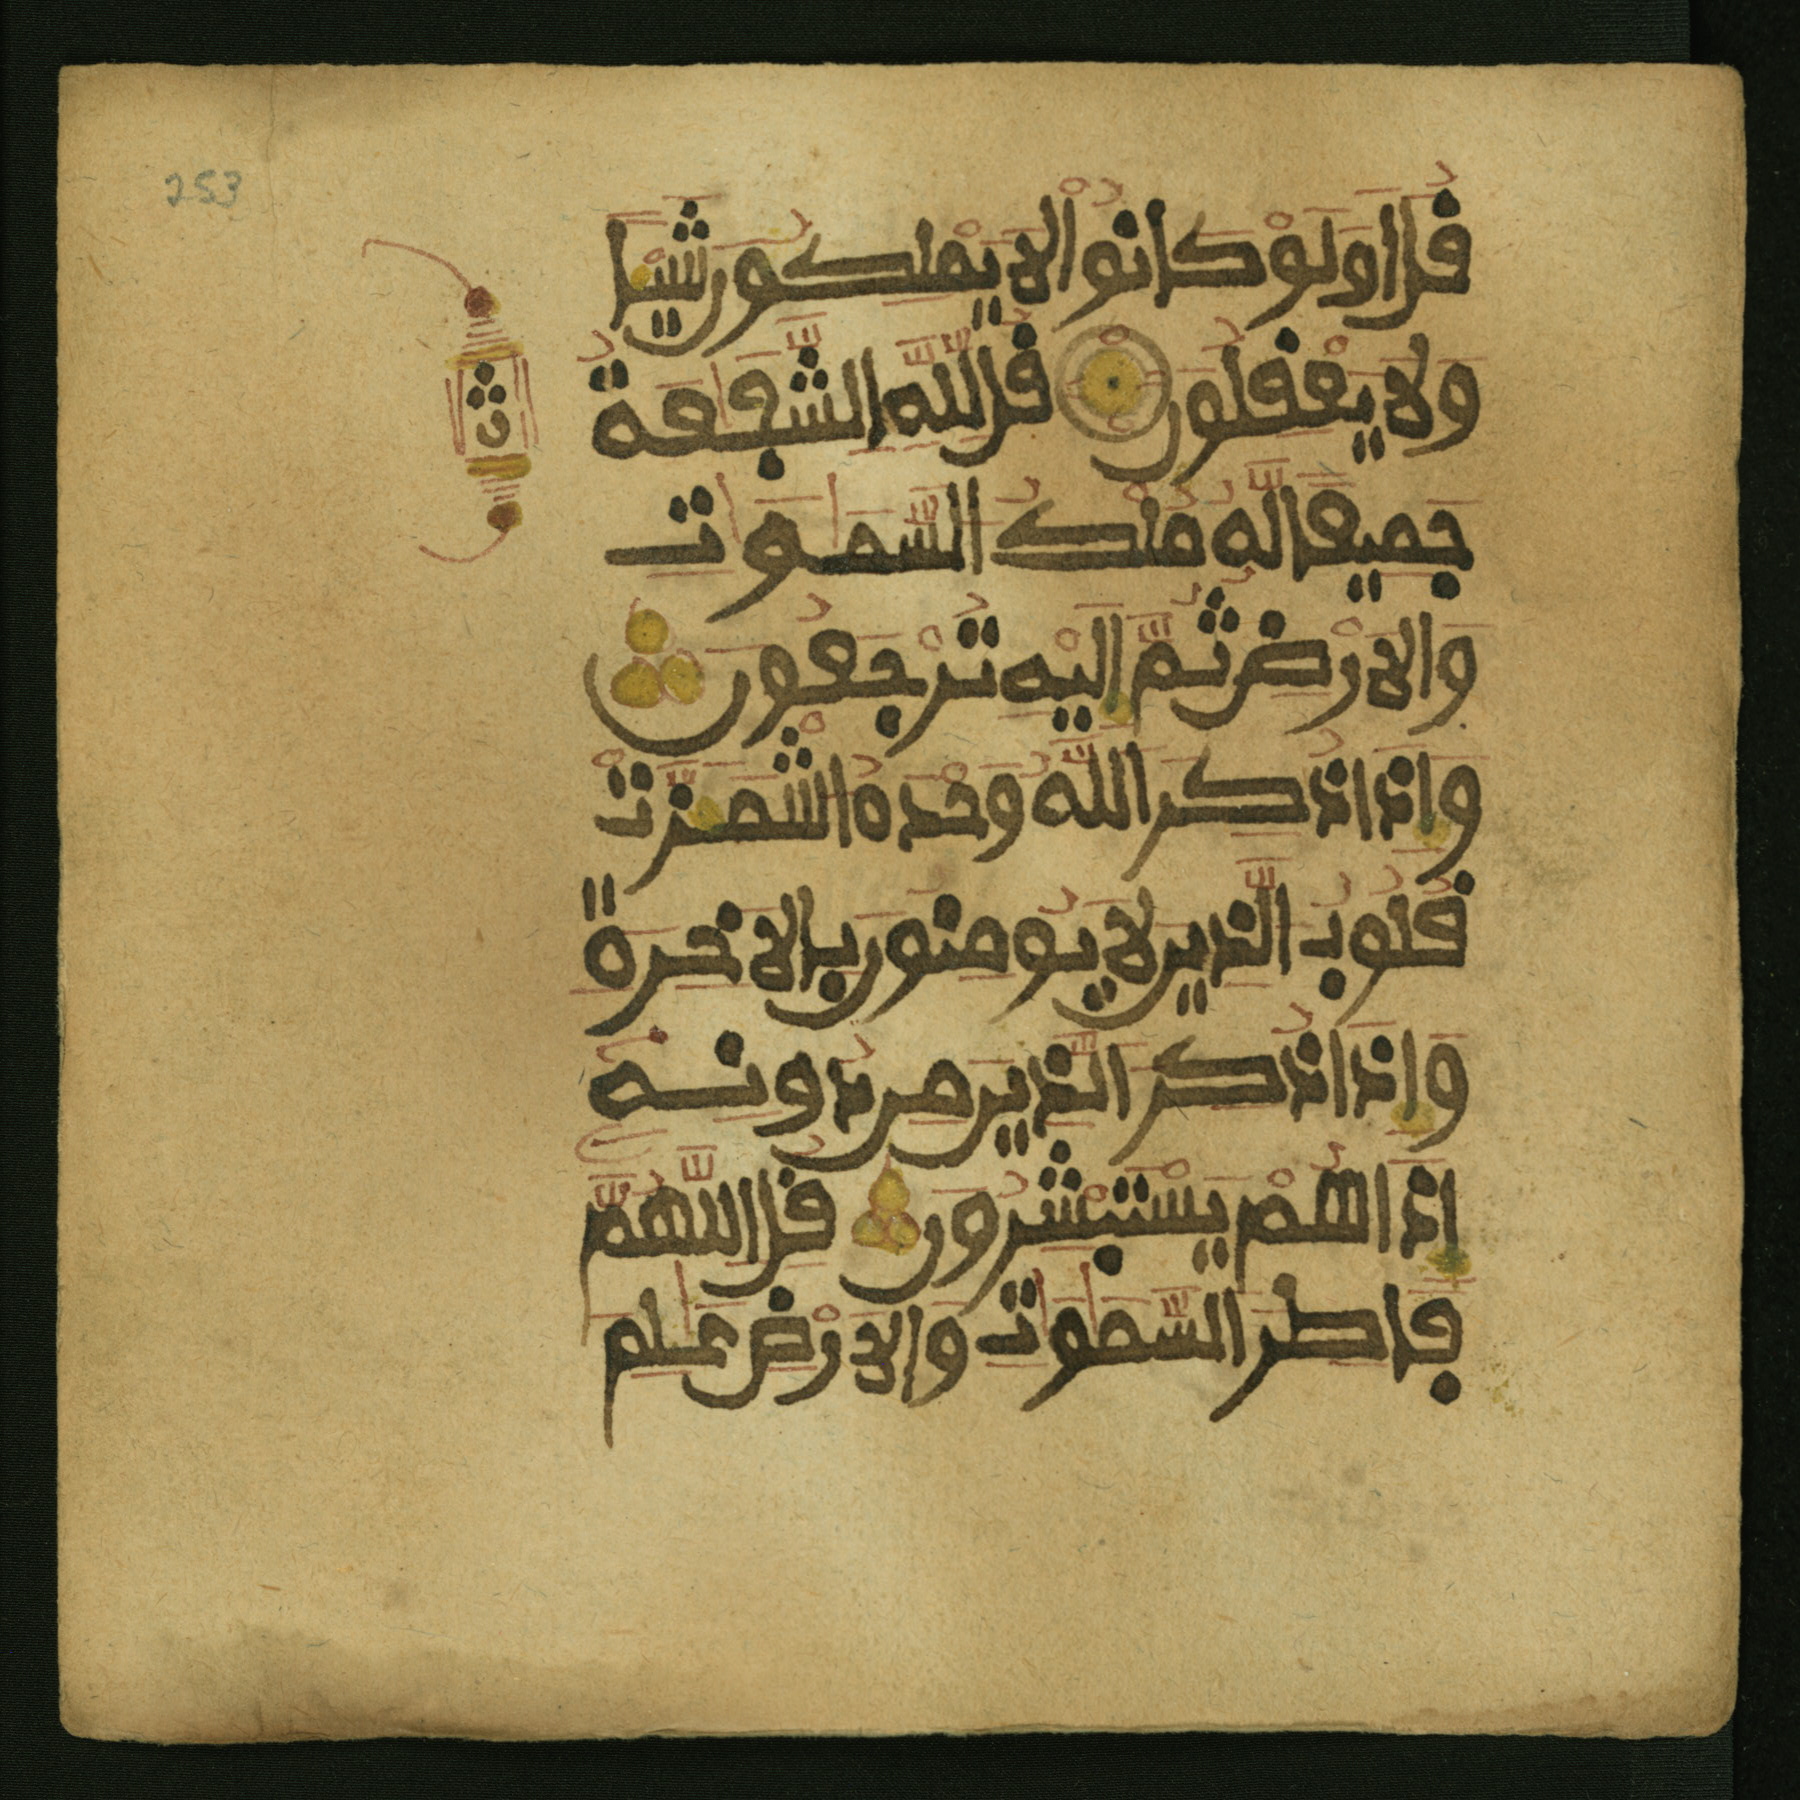 253
قُلَ اَوَلَوْ كَانُواْ لَا يَمْلِكُونَ شَيْـًٔا
وَلَا يَعْقِلُونَ قُل لِّلَّهِ الشَّفَٰعَةُ
جَمِيعًا لَّهُ مُلْكُ السَّمَٰوَٰتِ
وَالَارْضِ ثُمَّ إِلَيْهِ تُرْجَعُونَ
وَإِذَا ذُكِرَ اللَّهُ وَحْدَهُ اشْمَـَٔزَّتْ
قُلُوبُ الَّذِينَ لَا يُومِنُونَ بِالَاخِرَةِ
وَإِذَا ذُكِرَ الَّذِينَ مِن دُونِهِ
إِذَا هُمْ يَسْتَبْشِرُونَ قُلِ اللَّهُمَّ
فَاطِرَ السَّمَٰوَٰتِ وَالَارْضِ عَٰلِمَ